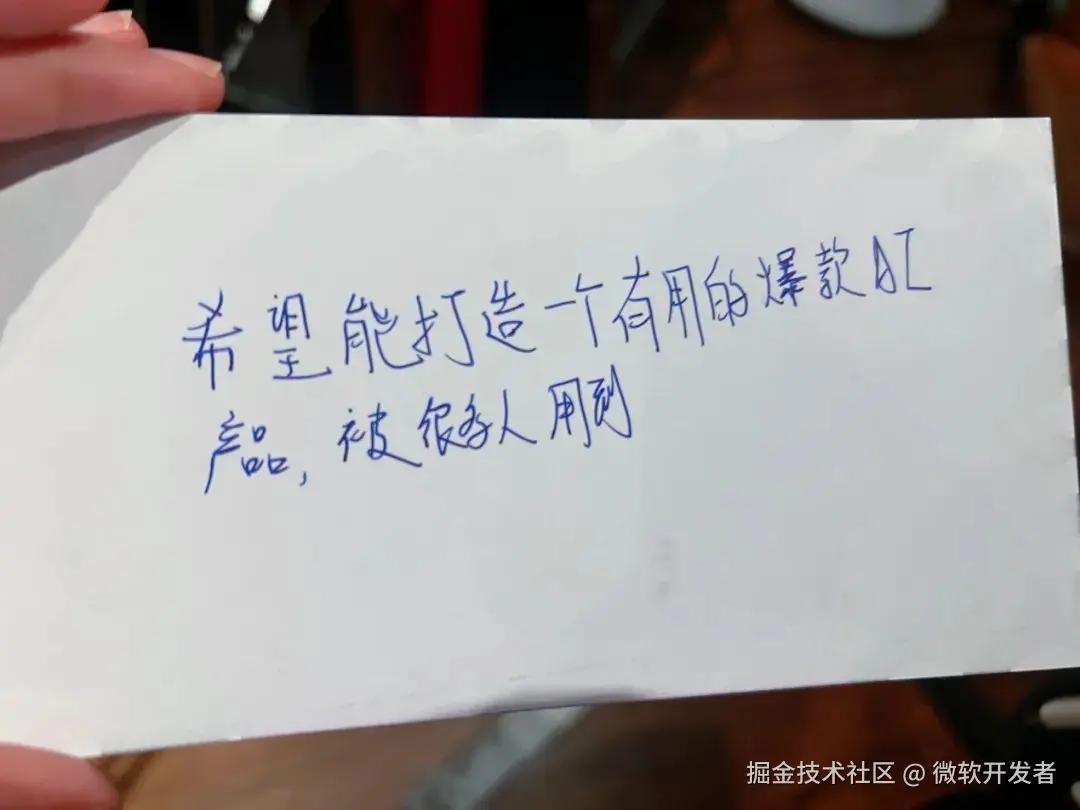 希望能打造一个有用的爆款AI
产品，被很多人用到
掘金技术社区 @ 微软开发者